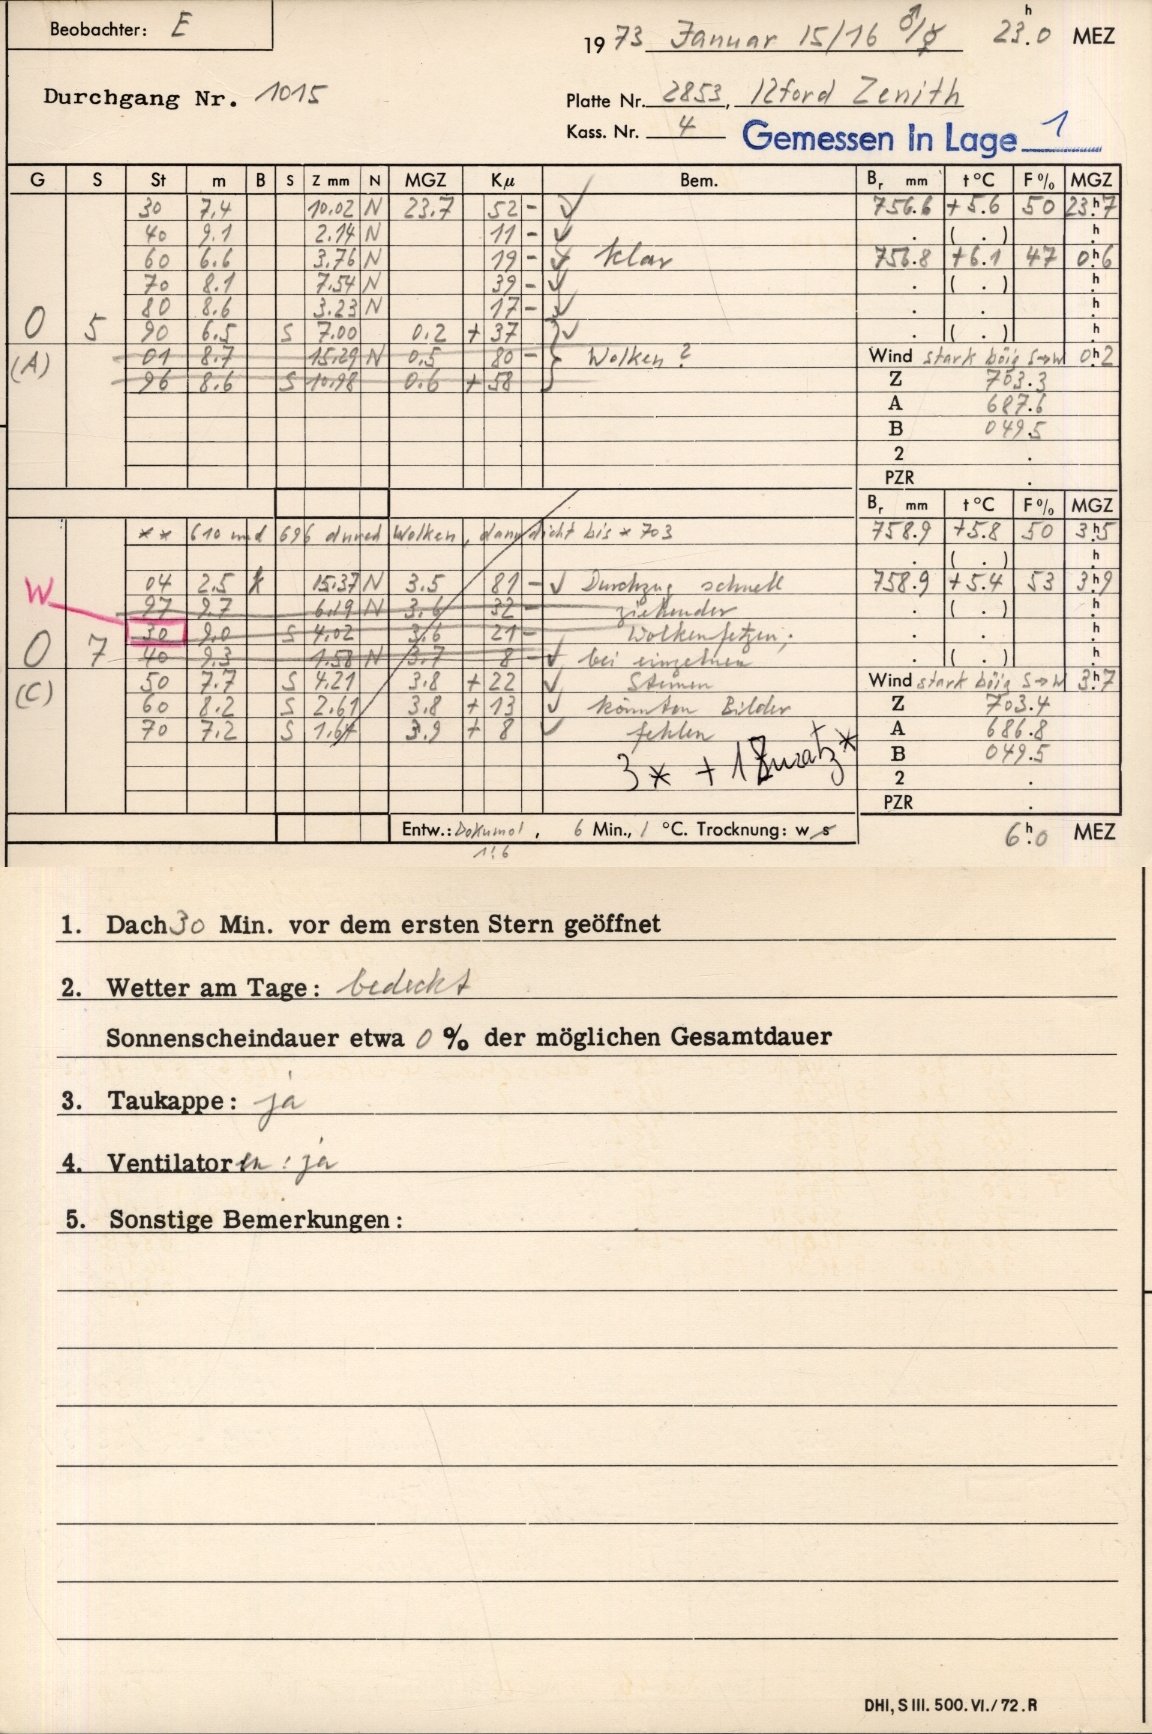 Beobachter: E
1973 Januar 15/16 ♂/☿ 23ʰ.0 MEZ
Durchgang Nr. 1015
Platte Nr. 2853, Ilford Zenith
Kass. Nr. 4 Gemessen In Lage 1
G S St m B S Z mm N MGZ Kμ Bem. Bᵣ mm t°C F% MGZ
30 7.4 10.02 N 23.7 52 - √ 756.6 +5.6 50 23ʰ.7
40 9.1 2.14 N 11 - √ . ( . ) ʰ.
60 6.6 3.76 N 19 - √ klar 756.8 +6.1 47 0ʰ.6
70 8.1 7.54 N 39 - √ . ( . ) ʰ.
80 8.6 3.23 N 17 - √ . . ʰ.
0 5 90 6.5 S 7.00 0.2 + 37 } √ . ( . ) ʰ.
(A) 01 8.7 15.29 N 0.5 80 - } Wolken? Wind stark böig S→W 0ʰ.2
96 8.6 S 10.98 0.6 + 58 Z 703.3
A 687.6
B 049.5
2 .
PZR .
Bᵣ mm t°C F% MGZ
** 610 und 696 durch Wolken, dann dicht bis * 703 758.9 +5.8 50 3ʰ.5
( . ) ʰ.
W 04 2.5 k 15.37 N 3.5 81 - √ Durchzug schnell 758.9 +5.4 53 3ʰ.9
97 9.7 6.19 N 3.6 32 - ziehender . ( . ) ʰ.
30 9.0 S 4.02 3.6 21 - Wolkenfetzen; . . ʰ.
0 7 40 9.3 1.58 N 3.7 8 - √ bei einzelnen . ( . ) ʰ.
(C) 50 7.7 S 4.21 3.8 + 22 √ Sternen Wind stark böig S→W 3ʰ.7
60 8.2 S 2.61 3.8 + 13 √ könnten Bilder Z 703.4
70 7.2 S 1.64 3.9 + 8 √ fehlen A 686.8
3* + 1 Zusatz* B 049.5
2 .
PZR .
Entw.: Dokumol, 6 Min., / °C. Trocknung: w s 6ʰ.0 MEZ
1:6
1. Dach 30 Min. vor dem ersten Stern geöffnet
2. Wetter am Tage: bedeckt
Sonnenscheindauer etwa 0 % der möglichen Gesamtdauer
3. Taukappe: ja
4. Ventilatoren: ja
5. Sonstige Bemerkungen:
DHI, S III. 500. VI./72. R